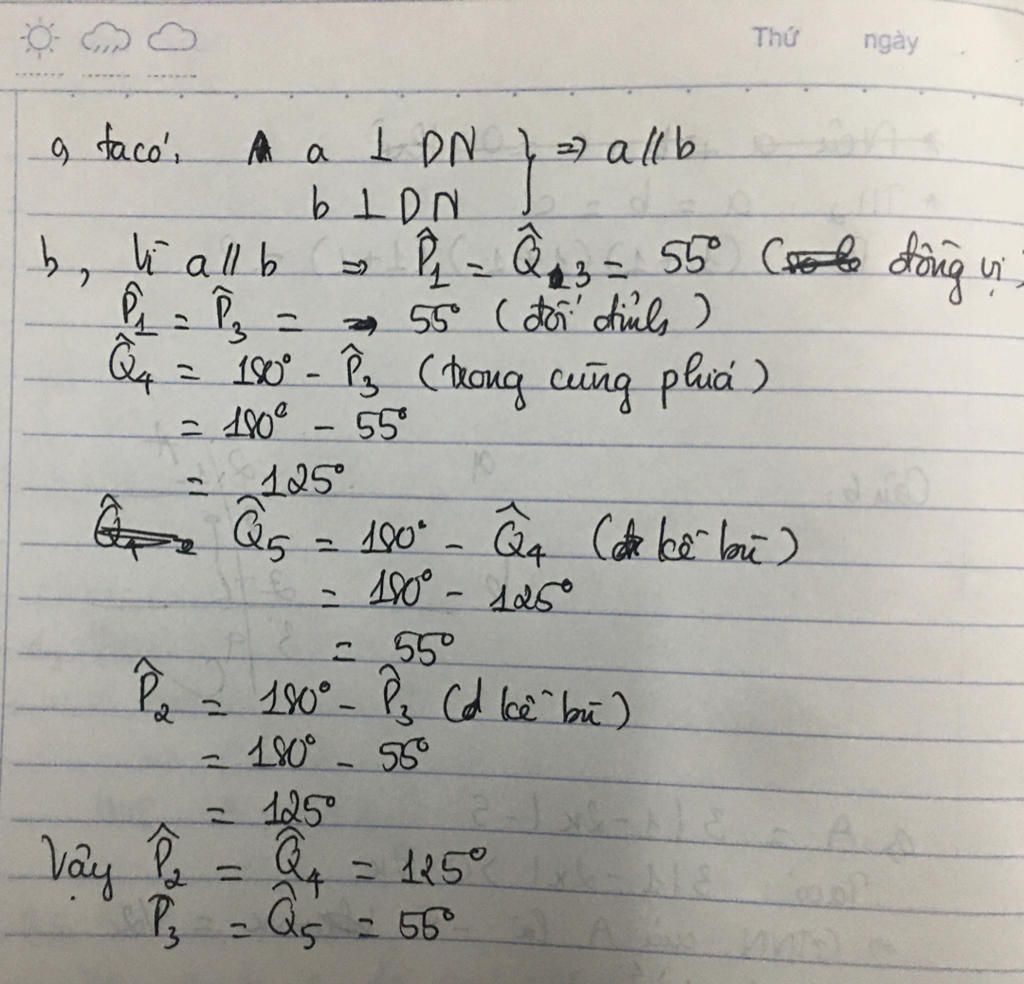 Thứ ngày
a, ta có: a ⊥ DN } => a // b
b ⊥ DN
b, Vì a // b => P̂1 = Q̂3 = 55° (đồng vị)
P̂1 = P̂3 = 55° (đối đỉnh)
Q̂4 = 180° - P̂3 (trong cùng phía)
= 180° - 55°
= 125°
Q̂5 = 180° - Q̂4 (kề bù)
= 180° - 125°
= 55°
P̂2 = 180° - P̂3 (kề bù)
= 180° - 55°
= 125°
Vậy P̂2 = Q̂4 = 125°
P̂3 = Q̂5 = 55°